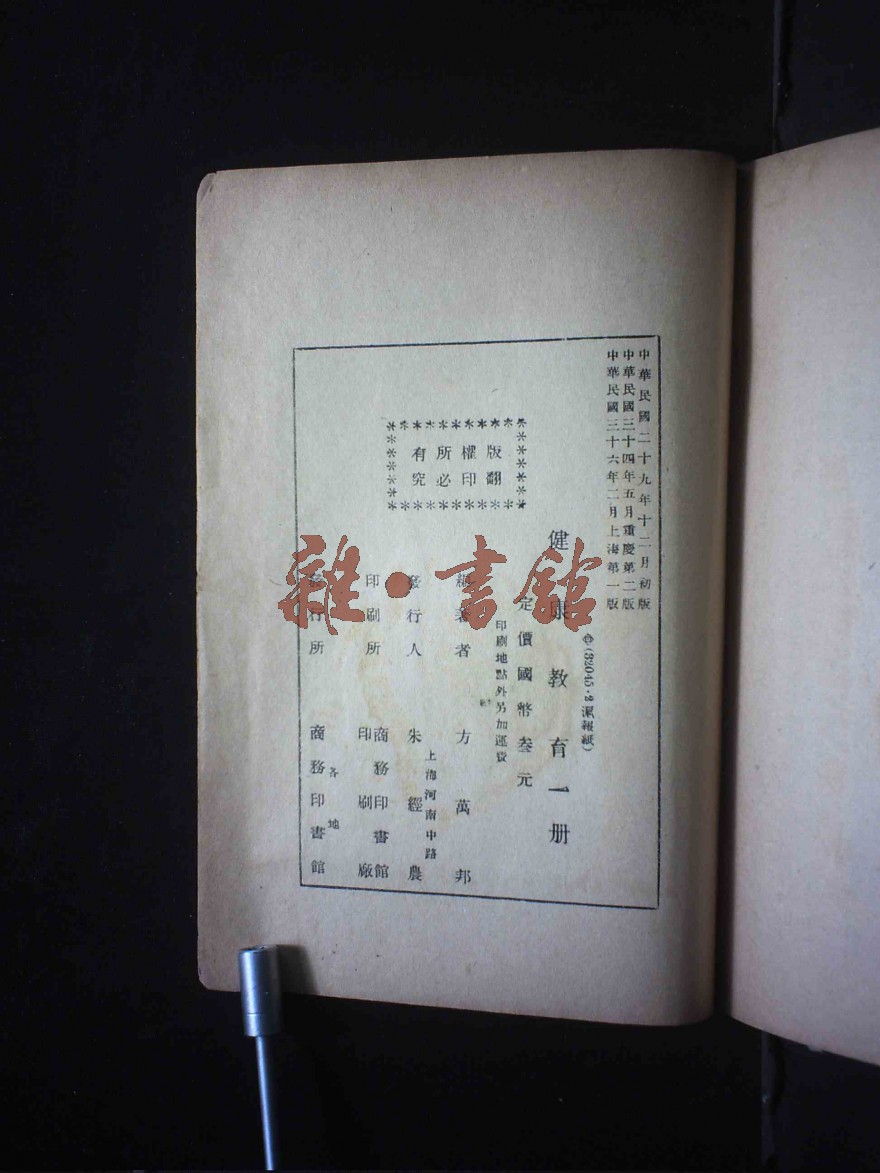 中華民國二十九年十二月初版
中華民國三十四年五月重慶第二版
中華民國三十六年二月上海第一版
㊥(52045·2滬報紙)
健康教育一册
定價國幣叁元
印刷地點外另加運費
版權所有
翻印必究
編著者 方萬邦
發行人 朱經農
上海河南中路
印刷所 商務印書館
印刷廠
發行所 商務印書館
各地
雜·書館